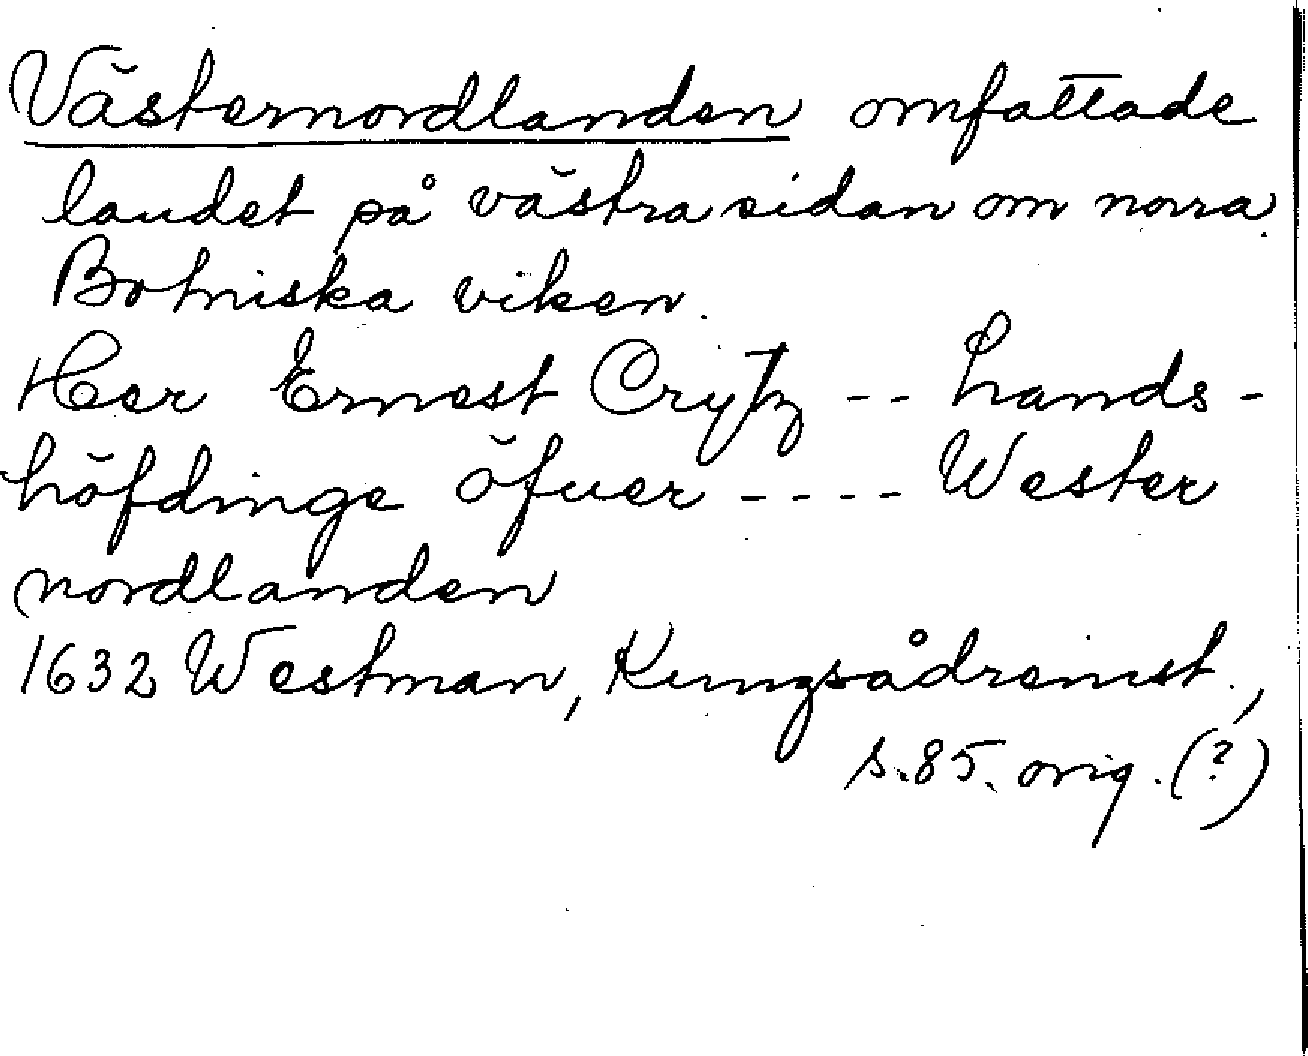 Västernordlanden omfattade
landet på västra sidan om norra
Botniska viken.
Her Ernest Crytz -- Lands-
höfdinge öfuer ---- Wester
nordlanden
1632 Westman, Kungsådreinst.,
s. 85. orig. (?)